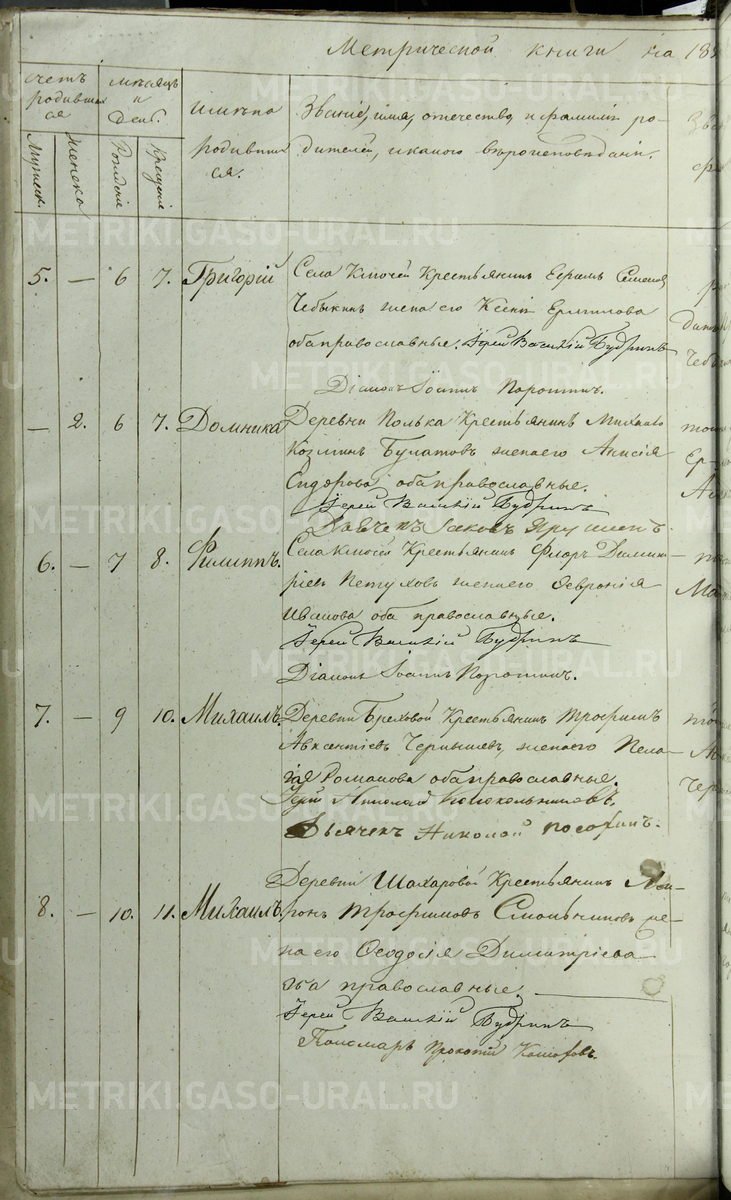 Метрической книги на 18
счетъ родившихся
мѣсяцъ и день.
Имѣна родившихся.
Званіе, имя, отечество и фамилія родителей, и какого вѣроисповѣданія.
Мужеск.
женска
Рожденія
Крещенія
5. — 6 7. Григорій
Села Ключей Крестьянинъ
Чебыкинъ жена его Ксенія Ермилова
оба православные. Іерей Василій Будринъ
Діаконъ Іоаннъ Поротинъ.
— 2. 6 7. Домника
Деревни Полька Крестьянинъ Михаило
Козминъ Булатовъ жена его Анисія
Сидорова оба православные.
Іерей Василій Будринъ
Іаковъ
6. — 7 8. Филиппъ.
Села Ключей Крестьянинъ Флоръ Димит-
ріевъ Петуховъ жена его Февронія
Иванова оба православные.
Іерей Василій Будринъ
Діаконъ Іоаннъ Поротинъ.
7. — 9 10. Михаилъ.
Деревни Бреховой Крестьянинъ Трофимъ
Авксентіевъ Чернышевъ, жена его Пела-
гія Романова оба православные.
Іерей Николай
Дьячекъ Николай
8. — 10. 11. Михаилъ.
Деревни Шахаровой Крестьянинъ Ми-
ронъ Трофимовъ же-
на его Феодосія Димитріева
оба православные.
Іерей Василій Будринъ
Пономарь Прокопій
METRIKI.GASO-URAL.RU